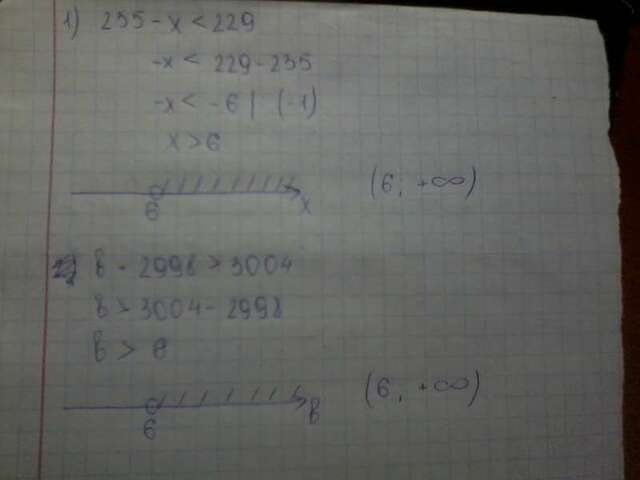 1) 235 - x < 229
-x < 229 - 235
-x < -6 | (-1)
x > 6
6 x (6; +∞)
2) в - 2998 > 3004
в > 3004 - 2998
в > 6
6 в (6; +∞)